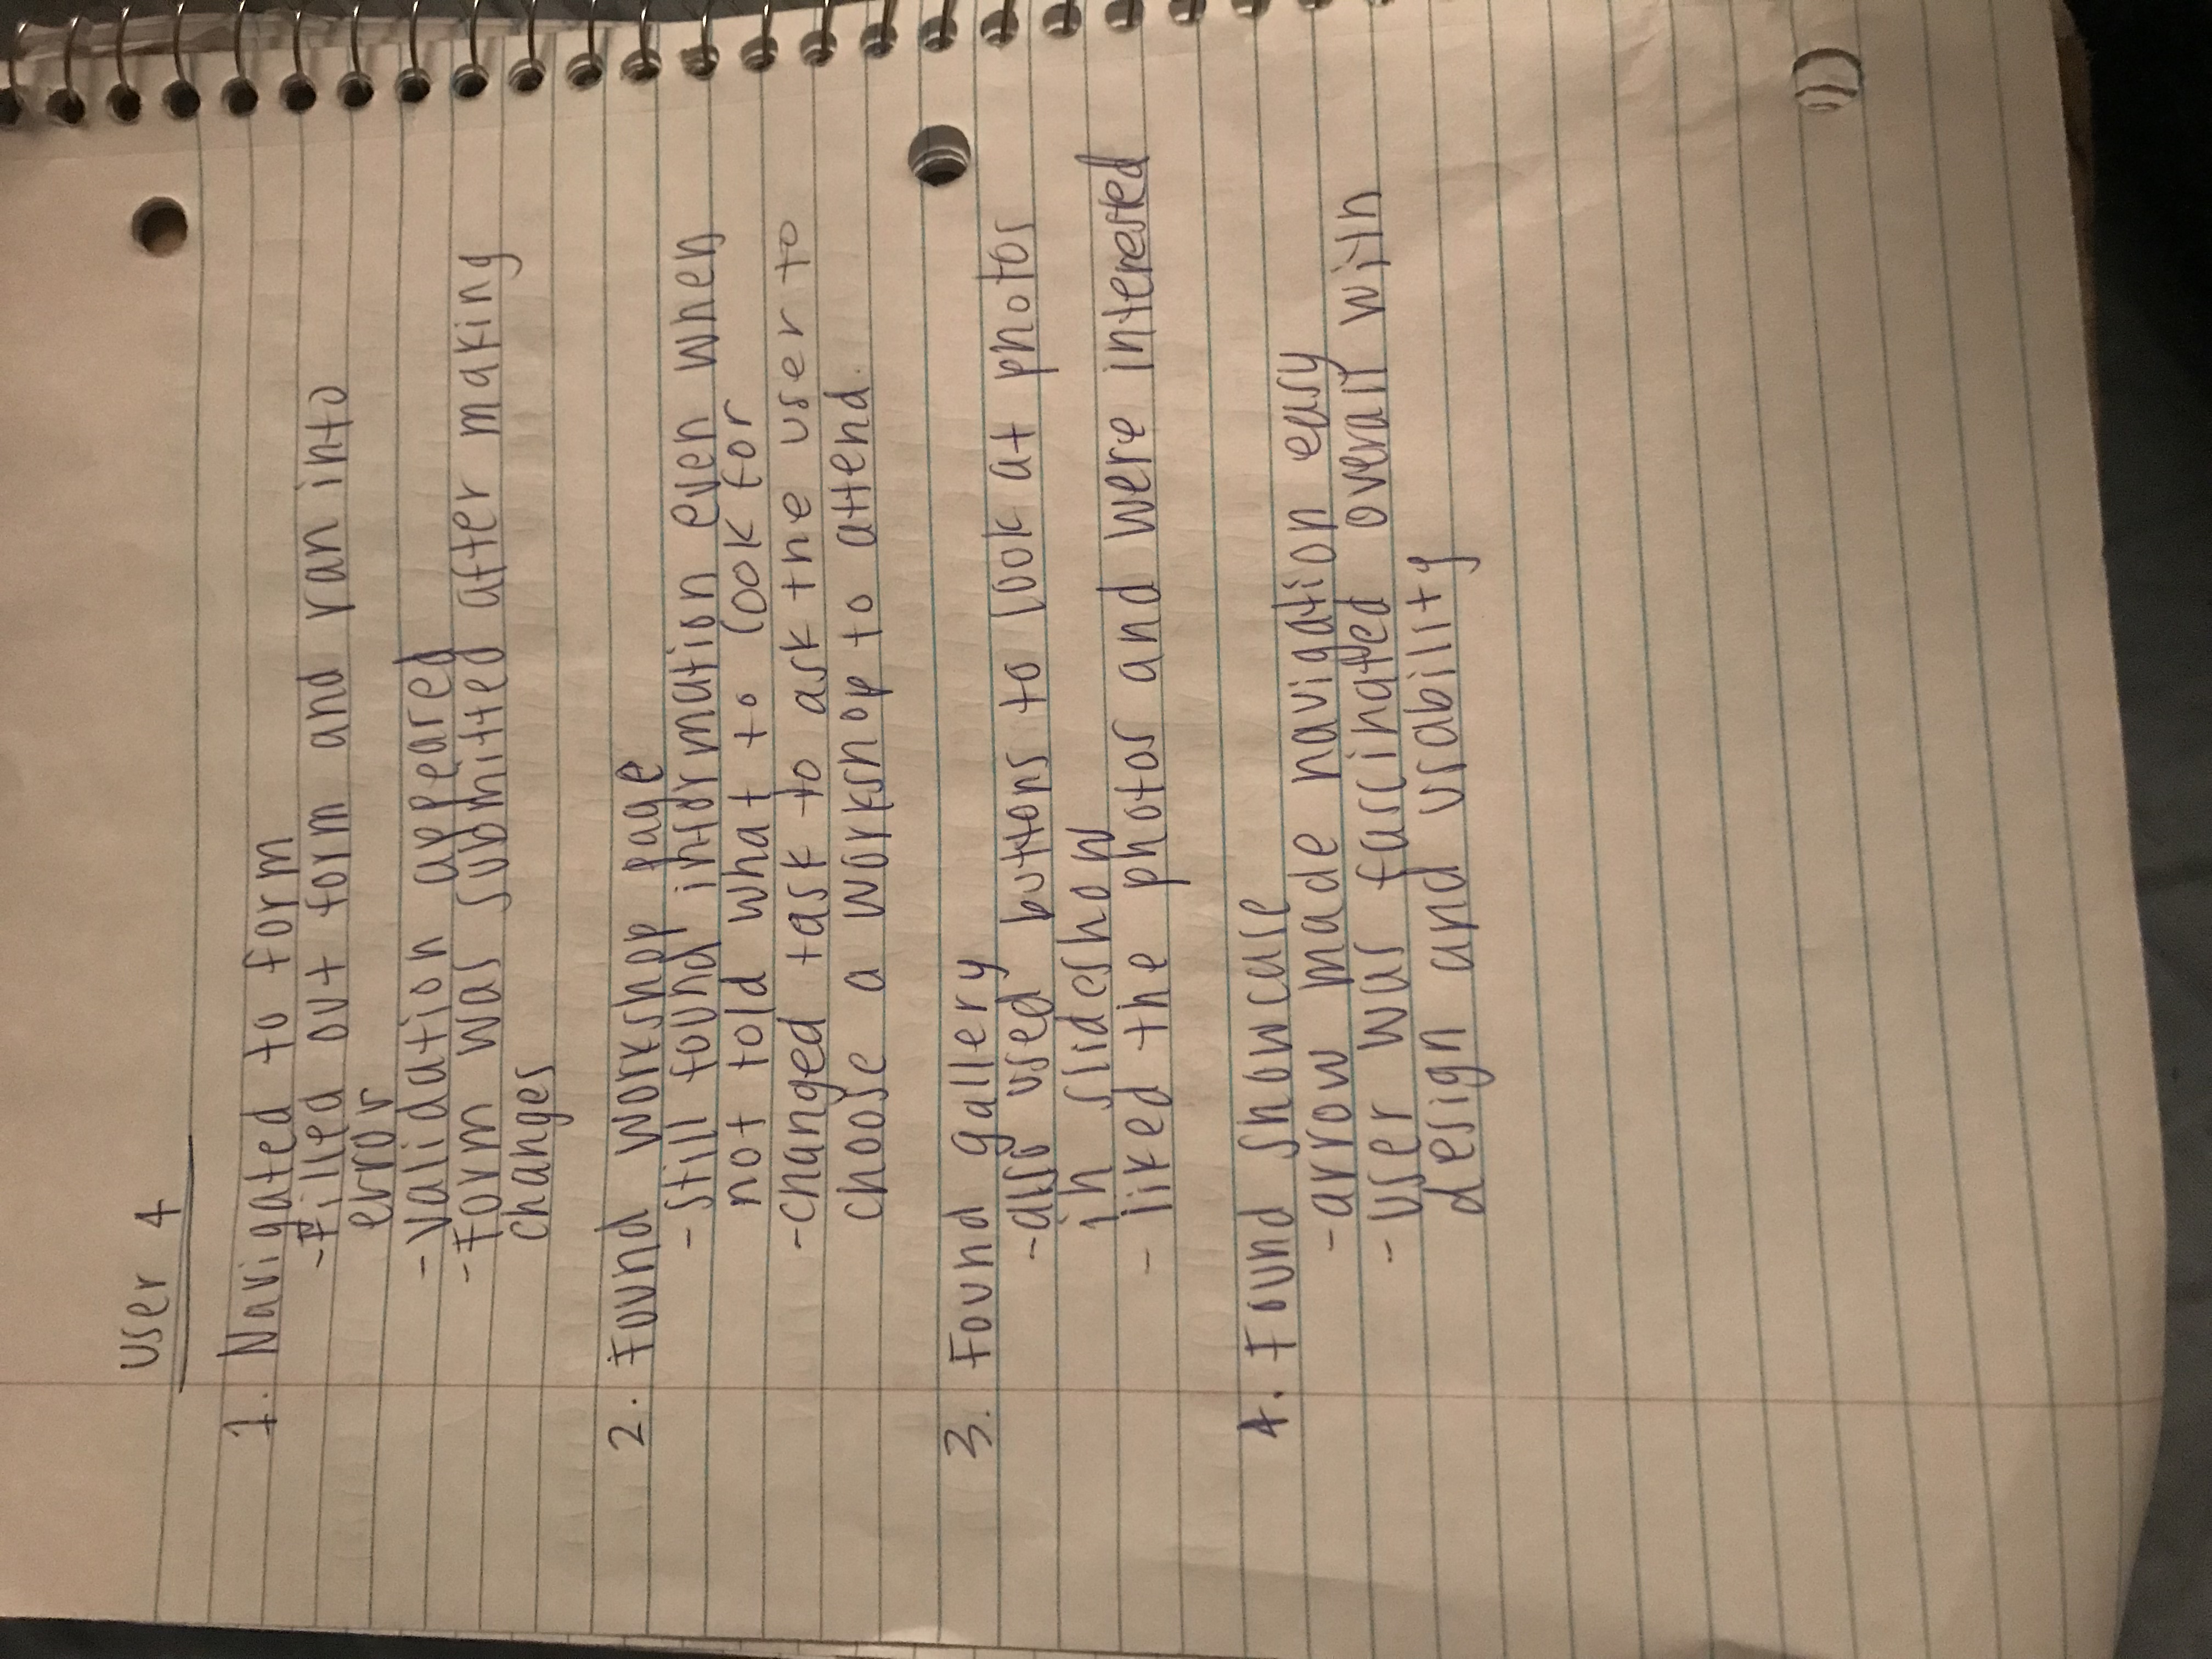 User 4
1. Navigated to form
-Filled out form and ran into
error
-validation appeared
-Form was submitted after making
changes
2. Found workshop page
-still found information even when
not told what to look for
-changed task to ask the user to
choose a workshop to attend.
3. Found gallery
-also used buttons to look at photos
in slideshow
- liked the photos and were interested
4. Found showcase
-arrow made navigation easy
-user was fascinated overall with
design and usability